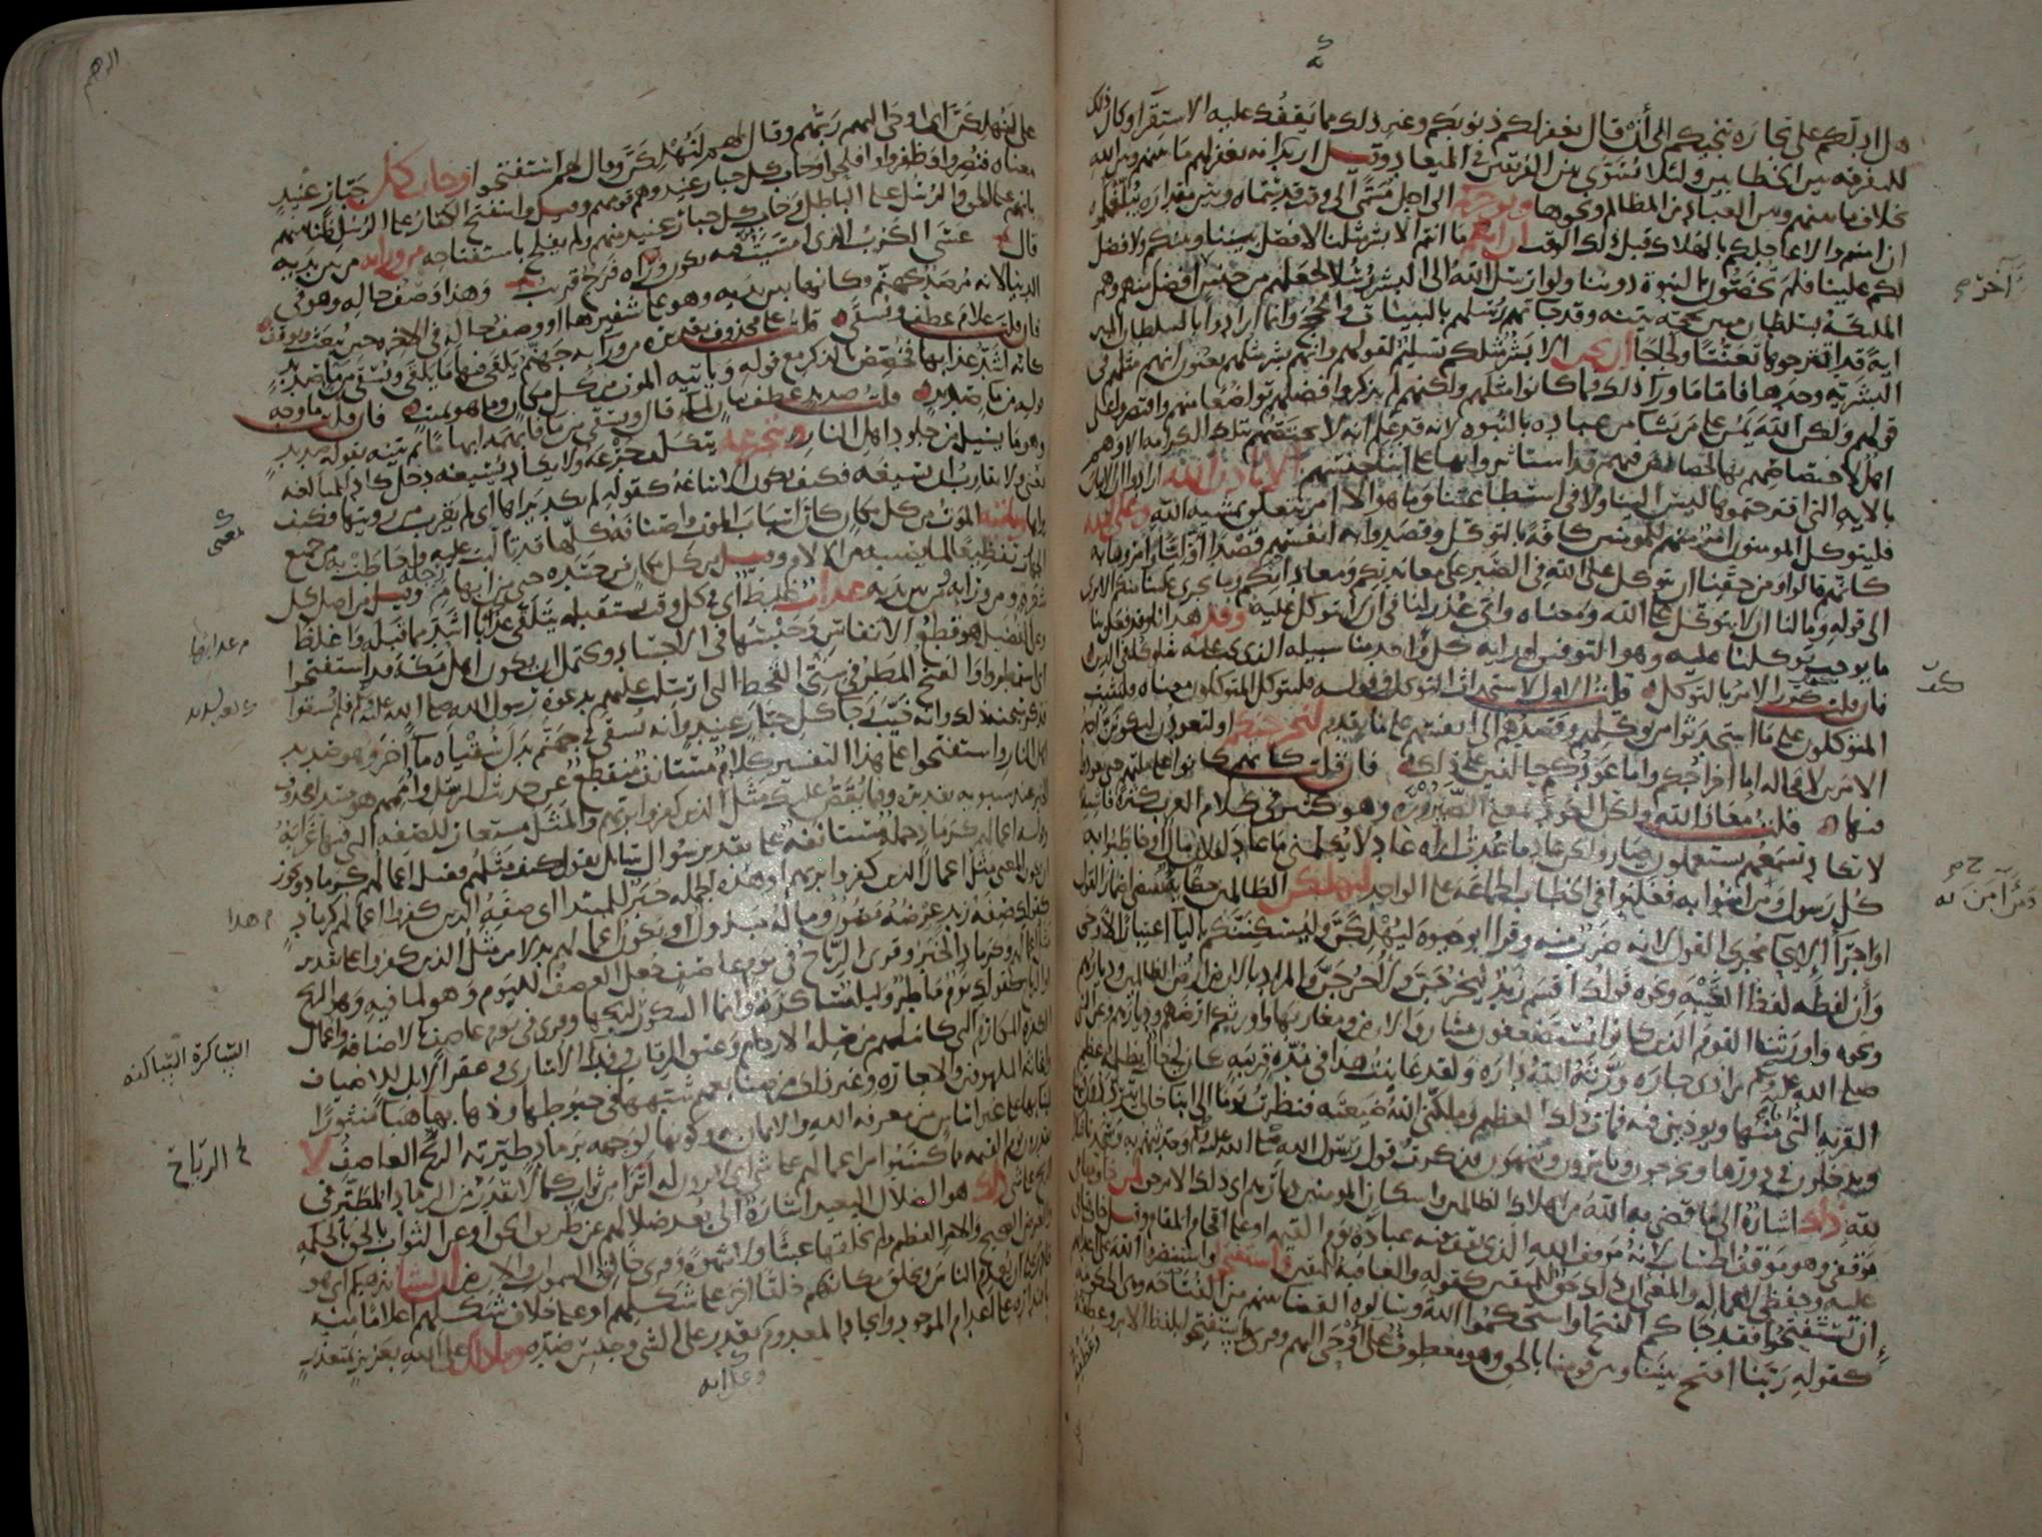 هل ادلكم على تجارة تنجيكم الى أن قال يغفر لكم ذنوبكم وغير ذلك مما يقفك عليه الاستقرا وكان ذلك
للتفرقه بين الخطابين ولئلا يسوى بين الفريقين في الميعاد وقيل اريد انه يغفر لهم ما بينهم وبين الله
بخلاف ما بينهم وبين العباد من المظالم ونحوها ويوخركم الى اجل مسمى الى وقت قد سماه وبين مقداره يبلغكموه
ان امنتم والا عاجلكم بالهلاك قبل ذلك الوقت ان انتم ما انتم الا بشر مثلنا لا فضل بيننا وبينكم ولا فضل
لكم علينا فلم تخصون بالنبوة دوننا ولو ارسل الله الى البشر رسلا لجعلهم من جنس افضل منهم وهم
الملئكة بسلطان مبين بحجة بينه وقد جاتهم رسلهم بالبينات والحجج وانما ارادوا بالسلطان المبين
اية قد اقترحوها تعنتا ولجاجا ان نحن الا بشر مثلكم تسليم لقولهم وانهم بشر مثلهم يعنون انهم مثلهم في
البشرية وحدها فاما ما ورا ذلك فما كانوا مثلهم ولكنهم لم يذكروا فضلهم تواضعا منهم واقتصروا على
قولهم ولكن الله يمن على من يشا من عباده بالنبوة لانه قد علم انه لا يختصهم بتلك الكرامه الا وهم
اهل لاختصاصهم بها لخصائص فيهم قد استاثروا بها على ابنا جنسهم الا باذن الله ارادوا ان الاتيان
بالايه التي اقترحتموها ليس الينا ولا في استطاعتنا وما هو الا امر يتعلق بمشيه الله وعلى الله
فليتوكل المومنون امر منهم للمومنين كافة بالتوكل وقصدوا به انفسهم قصدا اوليا وامروها به
كانهم قالوا ومن حقنا ان نتوكل على الله في الصبر على معاندتكم ومعاداتكم وما يجري علينا منكم الا ترى
الى قوله وما لنا ان لا نتوكل على الله ومعناه واي عذر لنا في ان لا نتوكل عليه وقد هدانا وقد فعل بنا
ما يوجب توكلنا عليه وهو التوفيق لهدايه كل واحد منا سبيله الذي يجب عليه سلوكه في الدين
فان قلت كيف كرر الامر بالتوكل قلت الاول لاستحداث التوكل وقوله فليتوكل المتوكلون معناه فليثبت
المتوكلون على ما استحدثوا من توكلهم وقصدهم الى انفسهم على ما تقدم لنخرجنكم او لتعودن ليكونن احد
الامرين لا محاله اما اخراجكم واما عودكم حالفين على ذلك فان قلت كانهم كانوا على ملتهم حتى يعودوا
فيها قلت معاذ الله ولكن العود بمعنى الصيرورة وهو كثير في كلام العرب كثرة فاشية
لا تكاد تسمعهم يستعملون صار ولكن عاد ما عدت اراه عاد لا يكلمني ما عاد لفلان مال او خاطبوا به
كل رسول ومن امنوا به فغلبوا في الخطاب الجماعة على الواحد لنهلكن الظالمين حكاية تقتضي اضمار القول
او اجرا الايحا مجرى القول لانه ضرب منه وقرا ابو حيوه ليهلكن وليسكننكم باليا اعتبارا لأوحى
وأن لفظه لفظ الغيبه ونحوه قولك اقسم زيد ليخرجن ولاخرجن والمراد بالارض ارض الظالمين وديارهم
ونحوه واورثنا القوم الذين كانوا يستضعفون مشارق الارض ومغاربها واورثكم ارضهم وديارهم وعن النبي
صلى الله عليه وسلم من اذى جاره ورثه الله داره ولقد عاينت هذا في مدة قريبة كان لي خال يظلمه عظيم
القرية التي انا منها ويوذيني فيه فمات ذلك العظيم وملكني الله ضيعته فنظرت يوما الى ابنا خالي يترددون
ويدخلون في دورها ويخرجون ويامرون وينهون فذكرت قول رسول الله صلى الله عليه وسلم وحدثتهم به وسجدنا شكرا
لله ذلك اشارة الى ما قضى به الله من اهلاك الظالمين واسكان المومنين ديارهم اى ذلك الامر حق لمن خاف مقامي
موقفي وهو موقف الحساب لانه موقف الله الذي يقف فيه عباده يوم القيمه او على اقحام المقام وقيل خاف قيامي
عليه وحفظي لاعماله والمعنى ان ذلك حق للمتقين كقوله والعاقبة للمتقين واستفتحوا واستنصروا الله على اعدائهم
إن تستفتحوا فقد جاكم الفتح او استحكموا الله وسالوه القضا بينهم من الفتاحة وهي الحكومة
كقوله ربنا افتح بيننا وبين قومنا بالحق وهو معطوف على اوحى اليهم وقرى واستفتحوا بلفظ الامر وعطفه
آخر
كيف
على لنهلكن اى اوحى اليهم ربهم وقال لهم لنهلكن وقال لهم استفتحوا وخاب كل جبار عنيد
معناه فنصروا وظفروا وافلحوا وخاب كل جبار عنيد وهم قومهم وقيل واستفتح الكفار على الرسل ظنا منهم
بانهم على الحق والرسل على الباطل وخاب كل جبار عنيد منهم ولم يفلح باستفتاحه من ورائه من بين يديه
قال عسى الكرب الذي امسيت فيه يكون وراه فرج قريب وهذا وصف حاله وهو في
الدنيا لانه مرصد لجهنم وكانها بين يديه وهو على شفيرها او وصف حاله في الاخره حين يبعث ويوقف
فان قلت علام عطف ويسقى قلت على محذوف تقديره من ورائه جهنم يلقى فيها ما يلقى ويسقى من ما صديد
كانه اشد عذابها فخصص بالذكر مع قوله وياتيه الموت من كل مكان وما هو بميت فان قلت ما وجه
قوله من ما صديد قلت صديد عطف بيان لما قال ويسقى من ما فابهمه ابهاما ثم بينه بقوله صديد
وهو ما يسيل من جلود اهل النار يتجرعه يتكلف جرعه ولا يكاد يسيغه دخل كاد للمبالغه
يعني ولا يقارب ان يسيغه فكيف يكون الاساغه كقوله لم يكد يراها اى لم يقرب من رويتها فكيف
يراها وياتيه الموت من كل مكان كان اسباب الموت واصنافه كلها قد تالبت عليه واحاطت به من جميع
الجهات تفظيعا لما يصيبه من الالام وقيل من كل مكان من جسده حتى من ابهام رجله وقيل من اصل كل
شعره ومن ورائه ومن بين يديه عذاب غليظ اى في كل وقت يستقبله يتلقى عذابا اشد مما قبله واغلظ
وعن الفضيل هو قطع الانفاس وحبسها في الاجساد ويحتمل ان يكون اهل مكه قد استفتحوا
اى استمطروا والفتح المطر في سني القحط التي ارسلت عليهم بدعوة رسول الله صلى الله عليه وسلم فلم يسقوا
فذكر سبحنه ذلك وانه خيب رجا كل جبار عنيد وانه يسقى في جهنم بدل سقياه ما آخر وهو صديد
اهل النار واستفتحوا على هذا التفسير كلام مستانف منقطع عن حديث الرسل واممهم هو مبتدا محذوف
الخبر عند سيبويه تقديره وفيما يقص عليك مثل الذين كفروا بربهم والمثل مستعار للصفه التي فيها غرابة
وقوله اعمالهم كرماد جملة مستانفة على تقدير سوال سائل يقول كيف مثلهم فقيل اعمالهم كرماد ويجوز
ان يكون المعنى مثل اعمال الذين كفروا بربهم او هذه الجملة خبر للمبتدا اى صفة الذين كفروا اعمالهم كرماد
كقولك صفة زيد عرضه مصون وماله مبذول او يكون اعمالهم بدلا من مثل الذين كفروا على تقدير
مثل اعمالهم وكرماد الخبر وقرى الرياح في يوم عاصف جعل العصف لليوم وهو لما فيه وهو الريح
او الرياح كقولك يوم ماطر وليلة ساكرة وانما السكون لريحها وقرى في يوم عاصف بالاضافه واعمال
الكفره المكارم التي كانت لهم من صلة الارحام وعتق الرقاب وفدا الاسارى وعقر الابل للاضياف
واغاثة الملهوفين والاجازه وغير ذلك من صنايعهم شبهها في حبوطها وذهابها هبا منثورا
لبنائها على غير اساس من معرفة الله والايمان به وكونها لوجهه برماد طيرته الريح العاصف لا
يقدرون يوم القيمه مما كسبوا من اعمالهم على شي اى لا يرون له اثرا من ثواب كما لا يقدر من الرماد المطير في
الريح على شي ذلك هو الضلال البعيد اشارة الى بعد ضلالهم عن طريق الحق او عن الثواب بالحق بالحكمه
والغرض الصحيح والامر العظيم ولم يخلقها عبثا ولا شهوة وقرى خالق السموات والارض ان يشا يذهبكم اى هو
قادر على ان يعدم الناس ويخلق مكانهم خلقا اخر على شكلهم او على خلاف شكلهم اعلاما منه
باقتداره على اعدام الموجود وايجاد المعدوم يقدر على الشي وجنس ضده وما ذلك على الله بعزيز بمتعذر
الساكرة الساكنه
الرياح